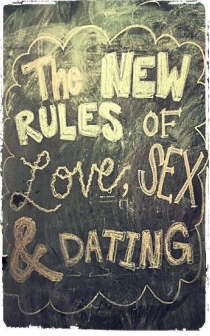 The NEW
RULES OF
Love, SEX
& DATING